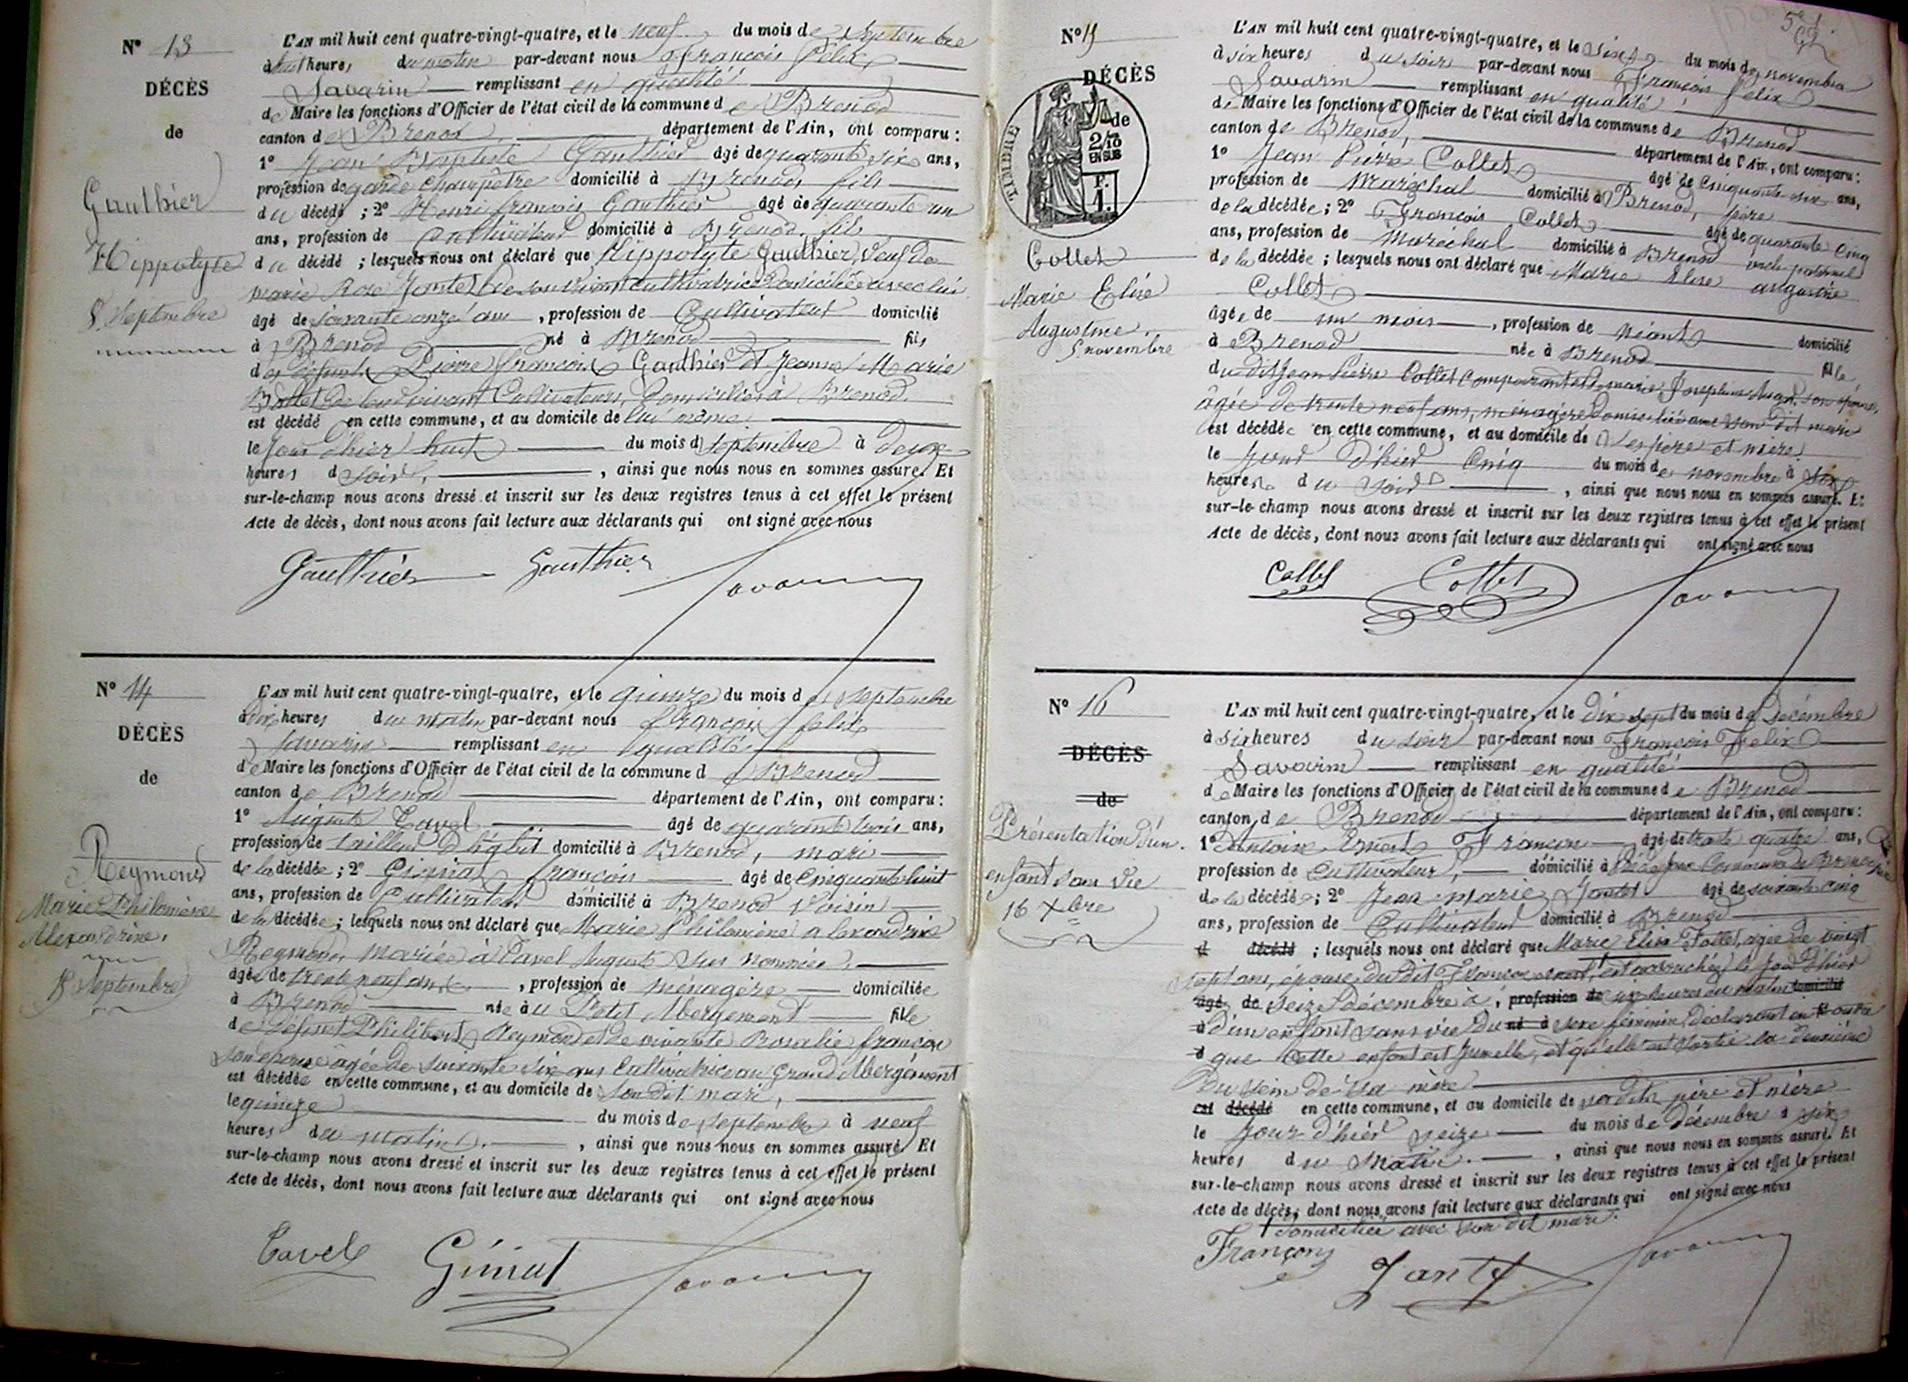 N° 13
DÉCÈS
de
Gauthier
Hippolyte
8 Septembre
L'AN mil huit cent quatre-vingt-quatre, et le neuf du mois de Septembre
à huit heures du matin par-devant nous François Félix
Savarin remplissant en qualité
de Maire les fonctions d'Officier de l'état civil de la commune de Brenod
canton de Brenod département de l'Ain, ont comparu :
1° Jean Baptiste Gauthier âgé de quarante six ans,
profession de garde champêtre domicilié à Brenod, fils
du décédé ; 2° Henri françois Gauthier âgé de quarante un
ans, profession de Cultivateur domicilié à Brenod, fils
du décédé ; lesquels nous ont déclaré que Hippolyte Gauthier, veuf de
marie Rose de son vivant cultivatrice domiciliée avec lui
âgé de soixante onze ans, profession de Cultivateur domicilié
à Brenod né à Brenod fils
des défunts Pierre françois Gauthier et Jeanne Marie
de leur vivant Cultivateurs, domiciliés à Brenod.
est décédé en cette commune, et au domicile de lui même
le jour d'hier huit du mois de septembre à deux
heures du soir, , ainsi que nous nous en sommes assuré. Et
sur-le-champ nous avons dressé et inscrit sur les deux registres tenus à cet effet le présent
Acte de décès, dont nous avons fait lecture aux déclarants qui ont signé avec nous
Gauthier Gauthier Savarin
N° 14
DÉCÈS
de
Reymond
Marie Philomène
Alexandrine.
15 Septembre
L'AN mil huit cent quatre-vingt-quatre, et le quinze du mois de septembre
à dix heures du matin par-devant nous françois félix
Savarin remplissant en qualité
de Maire les fonctions d'Officier de l'état civil de la commune de Brenod
canton de Brenod département de l'Ain, ont comparu :
1° Auguste Tavel âgé de quarante trois ans,
profession de tailleur d'habit domicilié à Brenod, mari
de la décédée ; 2° françois âgé de cinquante huit
ans, profession de Cultivateur domicilié à Brenod Voisin
de la décédée ; lesquels nous ont déclaré que Marie Philomène alexandrine
Reymond, mariée à Tavel Auguste sus nommé.
âgée de trente neuf ans, profession de ménagère domiciliée
à Brenod née au Petit Abergement fille
de défunt Philibert Reymond et de vivante Rosalie françon
son épouse âgée de soixante six ans Cultivatrice au grand Abergement
est décédée en cette commune, et au domicile de son dit mari,
le quinze du mois de septembre à neuf
heures du matin. , ainsi que nous nous en sommes assuré. Et
sur-le-champ nous avons dressé et inscrit sur les deux registres tenus à cet effet le présent
Acte de décès, dont nous avons fait lecture aux déclarants qui ont signé avec nous
Tavel Savarin
N° 15
DÉCÈS
de
TIMBRE
2/10
EN SUS
F.
1.
Collet
Marie Elise
Augustine
5 novembre
L'AN mil huit cent quatre-vingt-quatre, et le six du mois de novembre
à six heures du soir par-devant nous François Félix
Savarin remplissant en qualité
de Maire les fonctions d'Officier de l'état civil de la commune de Brenod
canton de Brenod, département de l'Ain, ont comparu :
1° Jean Pierre Collet âgé de cinquante six ans,
profession de Maréchal domicilié à Brenod, père
de la décédée ; 2° François Collet âgé de quarante cinq
ans, profession de Maréchal domicilié à Brenod oncle paternel
de la décédée ; lesquels nous ont déclaré que Marie Elise augustine
Collet
âgée de un mois, profession de néant domicilié
à Brenod née à Brenod fille
du dit Jean Pierre Collet comparant et de marie Josephine son épouse,
âgée de trente neuf ans, ménagère domiciliée avec son dit mari
est décédée en cette commune, et au domicile de ses père et mère,
le jour d'hier cinq du mois de novembre à six
heures du soir , ainsi que nous nous en sommes assuré. Et
sur-le-champ nous avons dressé et inscrit sur les deux registres tenus à cet effet le présent
Acte de décès, dont nous avons fait lecture aux déclarants qui ont signé avec nous
Collet Collet Savarin
N° 16
DÉCÈS
de
Présentation d'un
enfant sans vie
16 Xbre
L'AN mil huit cent quatre-vingt-quatre, et le dix sept du mois de décembre
à six heures du soir par-devant nous François Félix
Savarin remplissant en qualité
de Maire les fonctions d'Officier de l'état civil de la commune de Brenod
canton de Brenod département de l'Ain, ont comparu :
1° Antoine Ernest Françon âgé de trente quatre ans,
profession de Cultivateur, domicilié à commune de Brenod
de la décédée ; 2° Jean marie Jantet âgé de soixante cinq
ans, profession de Cultivateur domicilié à Brenod
d décédé ; lesquels nous ont déclaré que Marie Elisa Collet, agée de vingt
sept ans, épouse du dit Françon ernest, est accouchée le jour d'hier
âgé de seize décembre à, profession de six heures du matin domicilié
à d'un enfant sans vie du né à sexe féminin, déclarant en fi outre
d que cette enfant est jumelle, et qu'elle est sortie la deuxième
du sein de sa mère
est décédé en cette commune, et au domicile de ses dits père et mère
le jour d'hier seize du mois de décembre à six
heures du matin. , ainsi que nous nous en sommes assuré. Et
sur-le-champ nous avons dressé et inscrit sur les deux registres tenus à cet effet le présent
Acte de décès, dont nous avons fait lecture aux déclarants qui ont signé avec nous
† domiciliée avec son dit mari.
Françon Jantet Savarin